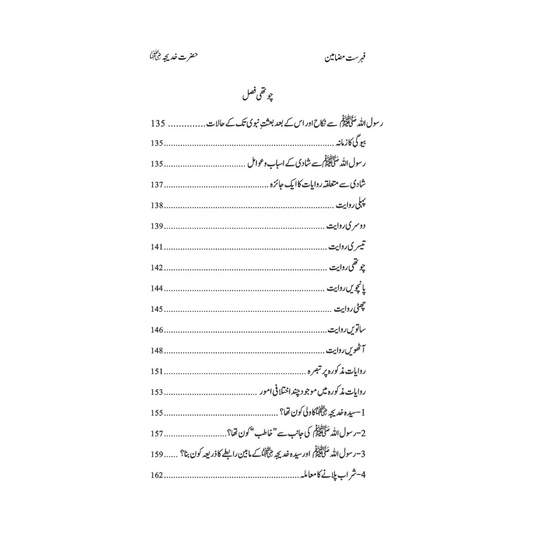 فہرست مضامین حضرت خدیجہ رضی اللہ عنہا
چوتھی فصل
رسول اللہ ﷺ سے نکاح اور اس کے بعد بعثتِ نبوی تک کے حالات .............. 135
بیوگی کا زمانہ ........ 135
رسول اللہ ﷺ سے شادی کے اسباب و عوامل ........ 135
شادی سے متعلقہ روایات کا ایک جائزہ ........ 137
پہلی روایت ........ 138
دوسری روایت ........ 139
تیسری روایت ........ 141
چوتھی روایت ........ 142
پانچویں روایت ........ 144
چھٹی روایت ........ 145
ساتویں روایت ........ 146
آٹھویں روایت ........ 148
روایات مذکورہ پر تبصرہ ........ 151
روایات مذکورہ میں موجود چند اختلافی امور ........ 153
1- سیدہ خدیجہ رضی اللہ عنہا کا ولی کون تھا؟ ........ 155
2- رسول اللہ ﷺ کی جانب سے "خاطب" کون تھا؟ ........ 157
3- رسول اللہ ﷺ اور سیدہ خدیجہ رضی اللہ عنہا کے مابین رابطے کا ذریعہ کون بنا؟ ...... 159
4- شراب پلانے کا معاملہ ........ 162